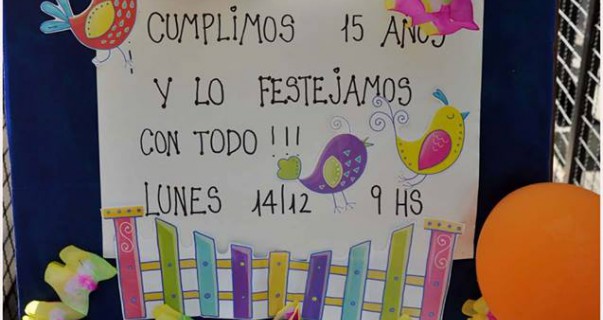 ¡CUMPLIMOS 15 AÑOS
Y LO FESTEJAMOS
CON TODO !!!
LUNES 14/12 9 HS